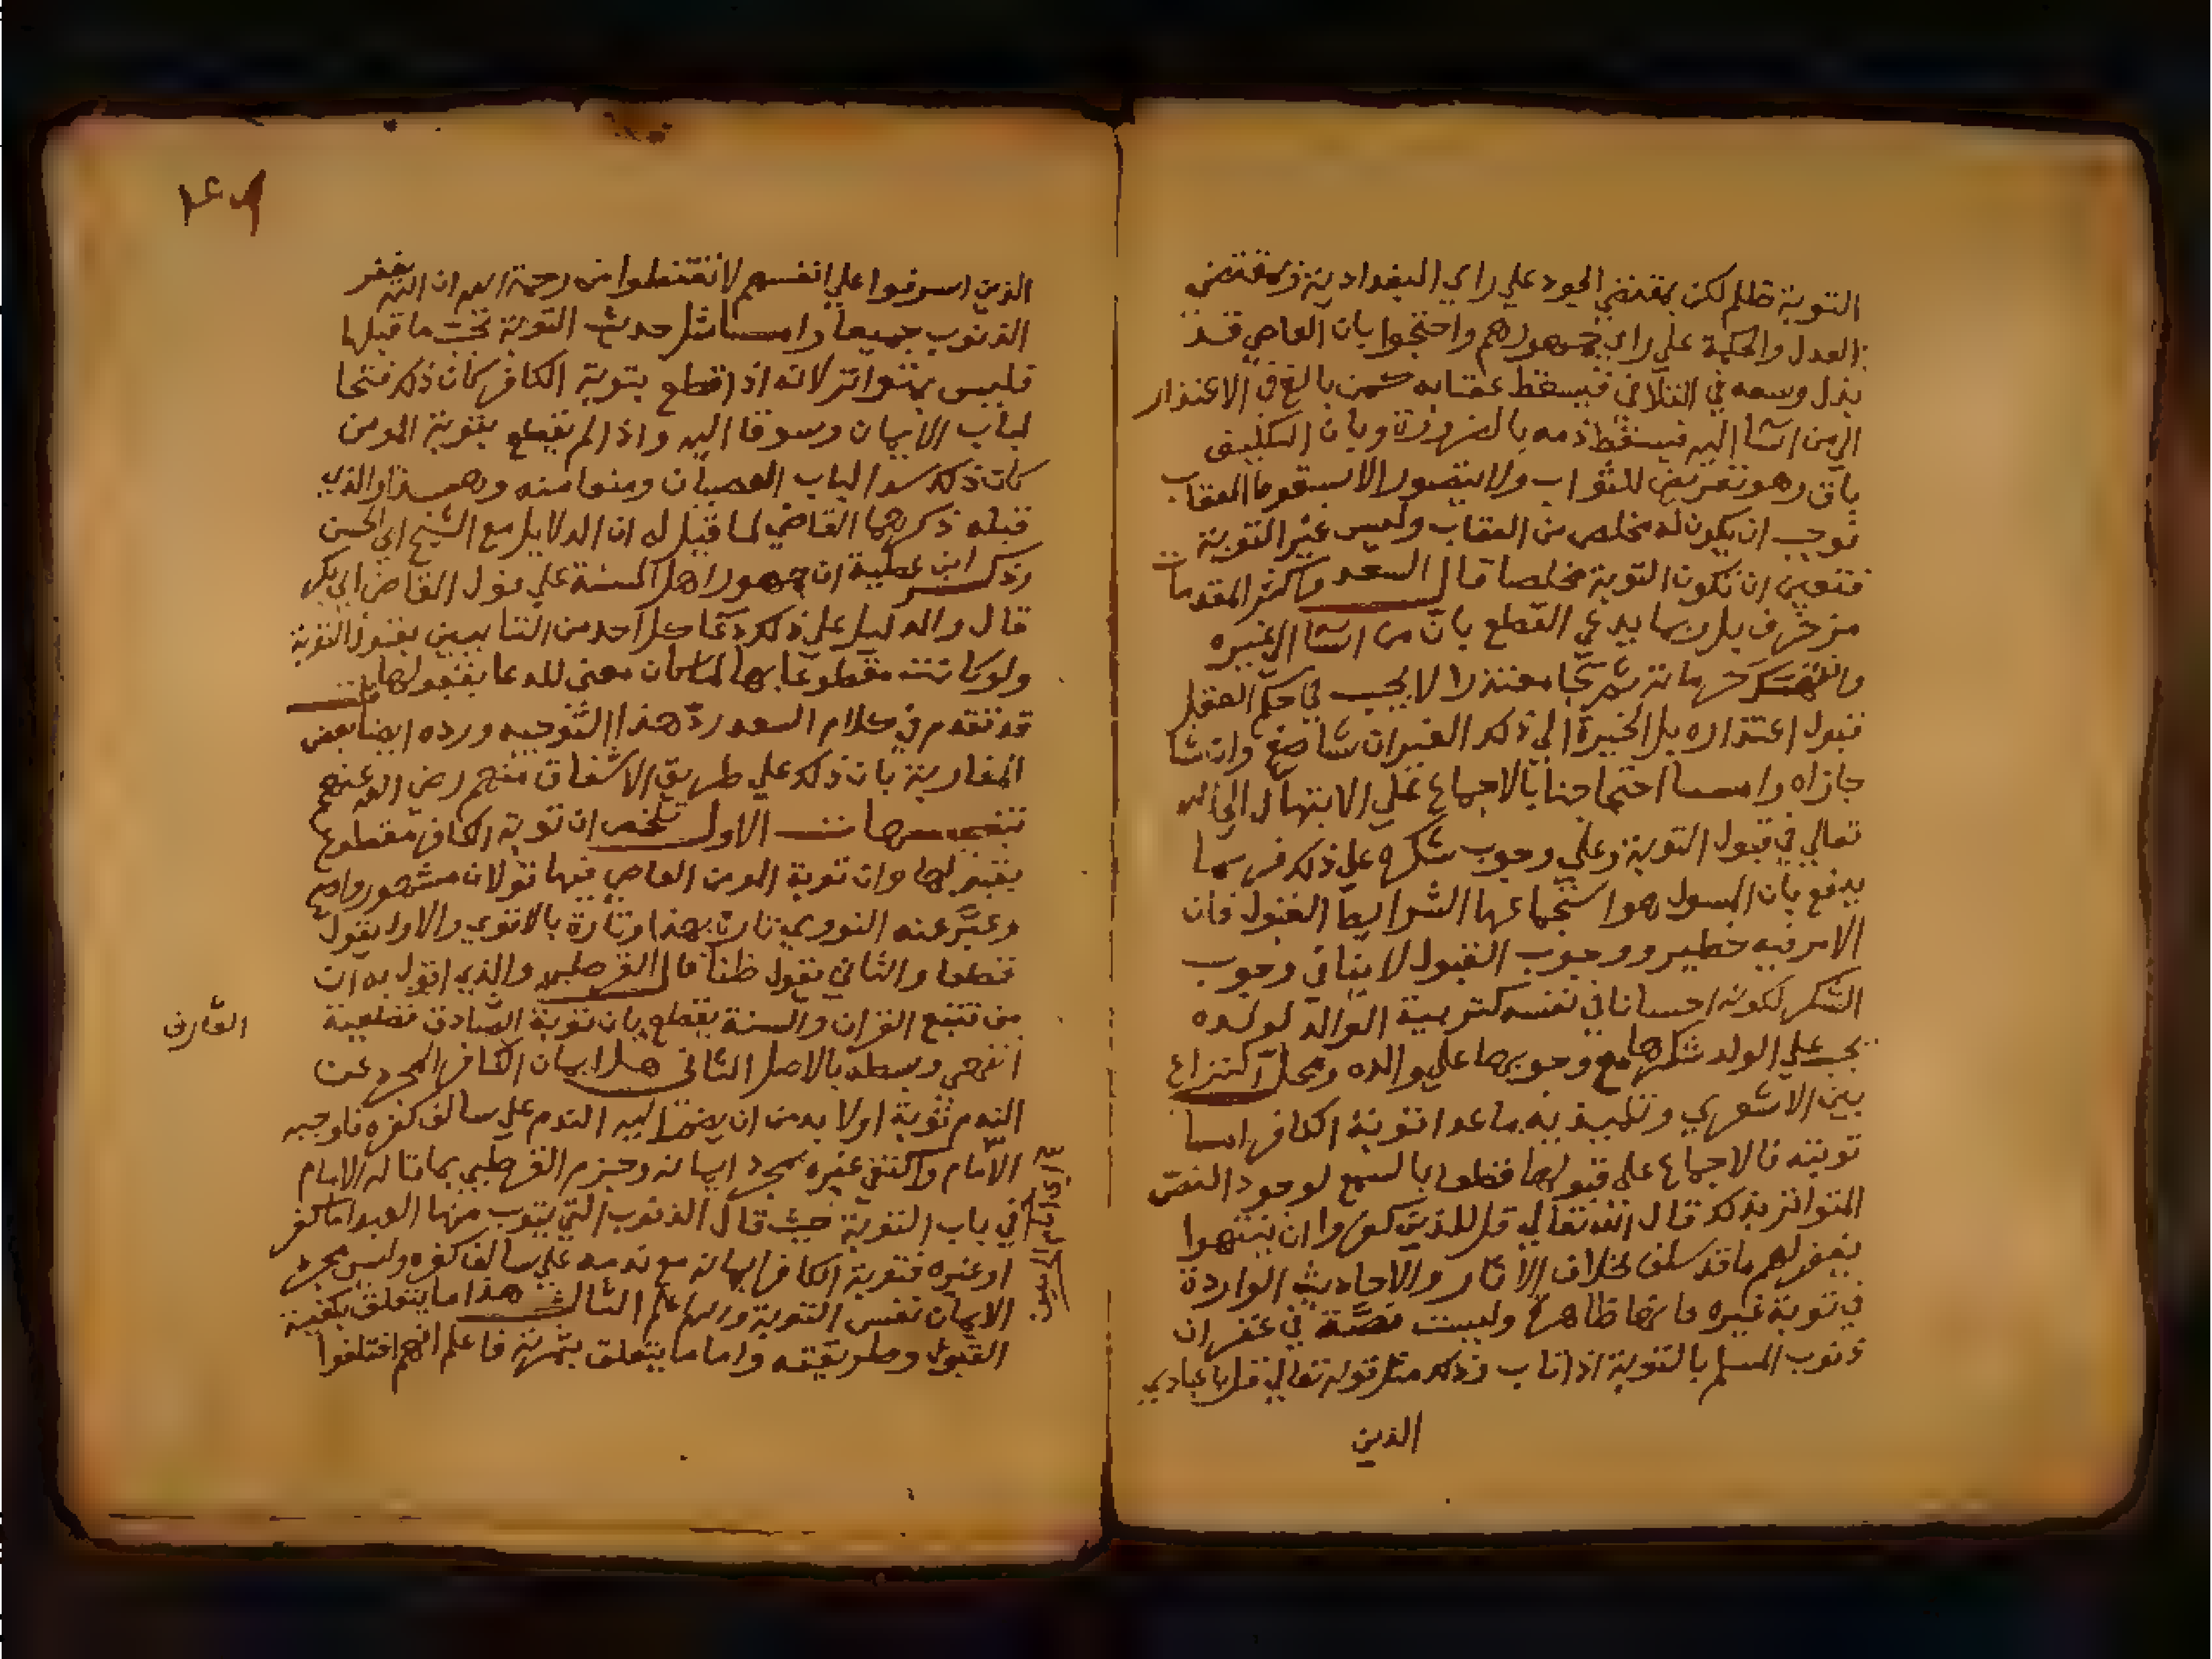 التوبة ظلم لكن بمقتضي الجود علي راي البغدادية وبمقتضي
العدل والحكمة علي راي جمهورهم واحتجوا بان العاصي قد
بذل وسعه في التلافي فيسقط عقابه كمن بالغ في الاعتذار
الي من اسا اليه فيسقط ذمه بالضرورة وبان التكليف
باق وهو تعريض للثواب ولا يتصور الا بسقوط العقاب
فوجب ان يكون له مخلص من العقاب وليس غير التوبة
فتعين ان تكون التوبة مخلصا قال السعد واكثر المقدمات
مزخرف بل ربما يدعي القطع بان من اسا الي غيره
وانتهك حرماته ثم جا معتذرا لا يجب في حكم العقل
قبول اعتذاره بل الخيرة الي ذلك الغير ان شا صفح وان شا
جازاه واما احتجاجنا بالاجماع علي الابتهال الي الله
تعالي في قبول التوبة وعلي وجوب شكره علي ذلك فربما
يدفع بان المسول هو استجماعها الشرايط القبول فان
الامر فيه خطير ووجوب القبول لا ينافي وجوب
الشكر لكونه احسانا في نفسه كتربية الوالد لولده
يجب علي الولد شكرها مع وجوبها علي والده ومحل النزاع
بين الاشعري وتلميذيه ما عدا توبة الكافر اما
توبته فالاجماع علي قبولها قطعا بالسمع لوجود النص
المتواتر بذلك قال الله تعالي قل للذين كفروا ان ينتهوا
يغفر لهم ما قد سلف بخلاف الاثار والاحاديث الواردة
في توبة غيره فانها ظاهرة وليست نصة في غفران
ذنوب المسلم بالتوبة اذا تاب وذلك مثل قوله تعالي قل يا عبادي
الذين
الذين اسرفوا علي انفسهم لا تقنطوا من رحمة الله ان الله يغفر
الذنوب جميعا واما مثل حديث التوبة تجب ما قبلها
فليس بمتواتر لانه اذا قطع بتوبة الكافر كان ذلك فتحا
لباب الايمان وسوقا اليه واذا لم يقطع بتوبة المومن
كان ذلك سدا لباب العصيان ومنعا منه وهذا والذي
قبله ذكرهما القاضي لما قيل له ان الدلايل مع الشيخ ابي الحسن
وذكر ابن عطية ان جمهور اهل السنة علي قول القاضي ابي بكر
قال والدليل علي ذلك دعا كل احد من التايبين بقبول التوبة
ولو كانت مقطوعا بها لما كان معني للدعا بقبولها قلت
قد تقدم في كلام السعد رد هذا التوجيه ورده ايضا بعض
المغاربة بان ذلك علي طريق الاشفاق منهم رضي الله عنهم
تنبيهات الاول تلخص ان توبة الكافر مقطوع
بقبولها وان توبة المومن العاصي فيها قولان مشهور واصح
وعبر عنه النووي تارة بهذا وتارة بالاقوي والاول يقول
قطعا والثاني يقول ظنا قال القرطبي والذي اقول به ان
من تتبع القران والسنة يقطع بان توبة الصادق قطعية
انتهي وبسطه بالاصل الثاني هل ايمان الكافر المجرد عن
الندم توبة او لا بد من ان يضم اليه الندم علي سالف كفره فاوجبه
الامام واكتفي غيره بمجرد ايمانه وجزم القرطبي بما قاله الامام
في باب التوبة حيث قال الذنوب التي يتوب منها العبد اما كفر
او غيره فتوبة الكافر ايمانه مع ندمه علي سالف كفره وليس مجرد
الايمان نفس التوبة والله اعلم الثالث هذا ما يتعلق بكيفية
القبول وطريقته واما ما يتعلق بثمرته فاعلم انهم اختلفوا